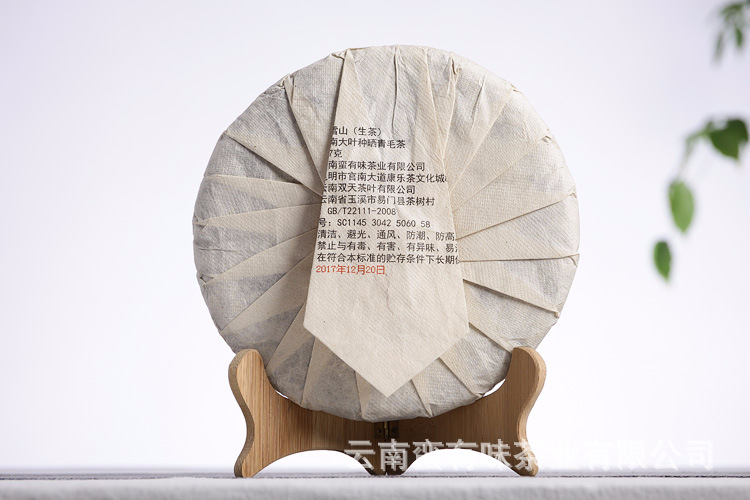 雪山（生茶）
南大叶种晒青毛茶
7克
南蛮有味茶业有限公司
明市官南大道康乐茶文化城
云南双天茶叶有限公司
云南省玉溪市易门县茶树村
GB/T22111-2008
号：SC1145 3042 5060 58
清洁、避光、通风、防潮、防高
禁止与有毒、有害、有异味、易
在符合本标准的贮存条件下长期
2017年12月20日
云南蛮有味茶业有限公司